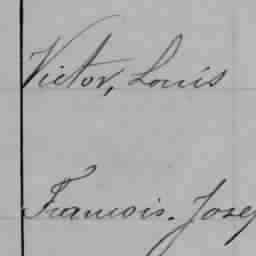 Victor, Louis
Francois. Josep